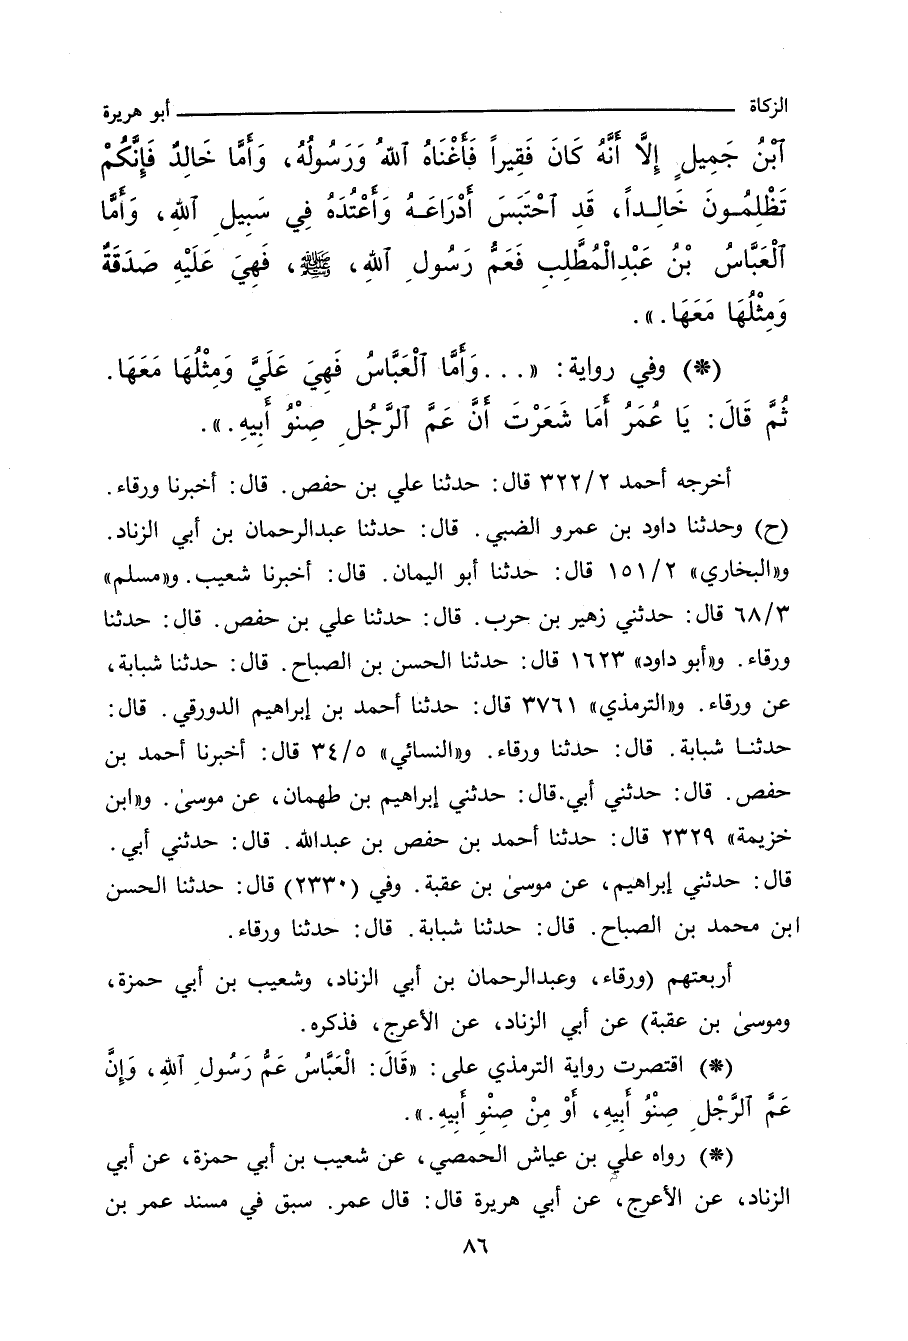 الزكاة ـــــ أبو هريرة
ٱبْنُ جَمِيلٍ إِلَّا أَنَّهُ كَانَ فَقِيراً فَأَغْنَاهُ ٱللهُ وَرَسُولُهُ، وَأَمَّا خَالِدٌ فَإِنَّكُمْ
تَظْلِمُونَ خَالِداً، قَدِ ٱحْتَبَسَ أَدْرَاعَهُ وَأَعْتُدَهُ فِي سَبِيلِ ٱللهِ، وَأَمَّا
ٱلْعَبَّاسُ بْنُ عَبْدِالْمُطَّلِبِ فَعَمُّ رَسُولِ ٱللهِ، ﷺ، فَهِيَ عَلَيْهِ صَدَقَةٌ
وَمِثْلُهَا مَعَهَا.».
(*) وفي رواية: «... وَأَمَّا ٱلْعَبَّاسُ فَهِيَ عَلَيَّ وَمِثْلُهَا مَعَهَا.
ثُمَّ قَالَ: يَا عُمَرُ أَمَا شَعَرْتَ أَنَّ عَمَّ ٱلرَّجُلِ صِنْوُ أَبِيهِ.».
أخرجه أحمد ٣٢٢/٢ قال: حدثنا علي بن حفص. قال: أخبرنا ورقاء.
(ح) وحدثنا داود بن عمرو الضبي. قال: حدثنا عبدالرحمان بن أبي الزناد.
و«البخاري» ١٥١/٢ قال: حدثنا أبو اليمان. قال: أخبرنا شعيب. و«مسلم»
٦٨/٣ قال: حدثني زهير بن حرب. قال: حدثنا علي بن حفص. قال: حدثنا
ورقاء. و«أبو داود» ١٦٢٣ قال: حدثنا الحسن بن الصباح. قال: حدثنا شبابة،
عن ورقاء. و«الترمذي» ٣٧٦١ قال: حدثنا أحمد بن إبراهيم الدورقي. قال:
حدثنا شبابة. قال: حدثنا ورقاء. و«النسائي» ٣٤/٥ قال: أخبرنا أحمد بن
حفص. قال: حدثني أبي. قال: حدثني إبراهيم بن طهمان، عن موسىٰ. و«ابن
خزيمة» ٢٣٢٩ قال: حدثنا أحمد بن حفص بن عبدالله. قال: حدثني أبي.
قال: حدثني إبراهيم، عن موسىٰ بن عقبة. وفي (٢٣٣٠) قال: حدثنا الحسن
ابن محمد بن الصباح. قال: حدثنا شبابة. قال: حدثنا ورقاء.
أربعتهم (ورقاء، وعبدالرحمان بن أبي الزناد، وشعيب بن أبي حمزة،
وموسىٰ بن عقبة) عن أبي الزناد، عن الأعرج، فذكره.
(*) اقتصرت رواية الترمذي على: «قَالَ: الْعَبَّاسُ عَمُّ رَسُولِ ٱللهِ، وَإِنَّ
عَمَّ ٱلرَّجُلِ صِنْوُ أَبِيهِ، أَوْ مِنْ صِنْوِ أَبِيهِ.».
(*) رواه علي بن عياش الحمصي، عن شعيب بن أبي حمزة، عن أبي
الزناد، عن الأعرج، عن أبي هريرة قال: قال عمر. سبق في مسند عمر بن
٨٦